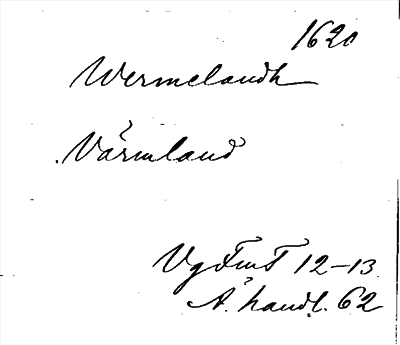 1620
Wermelandh
Värmland
VgFmT 12-13
Å. handl. 62